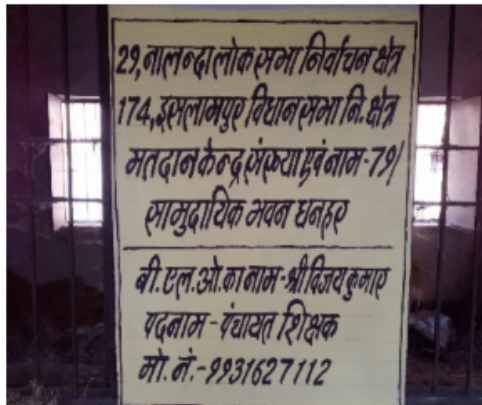 29, नालन्दा लोक सभा निर्वाचन क्षेत्र
174, इसलामपुर विधान सभा नि. क्षेत्र
मतदान केन्द्र संख्या एवं नाम - 79/
सामुदायिक भवन धनहर
बी. एल. ओ. का नाम - श्री विजय कुमार
पदनाम - पंचायत शिक्षक
मो. नं. - 9931627112